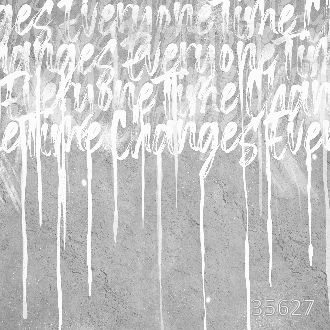 ges Everyone Time C
hanges Everyone Tim
e Everyone Time Chan
e Time Changes Ever
35627